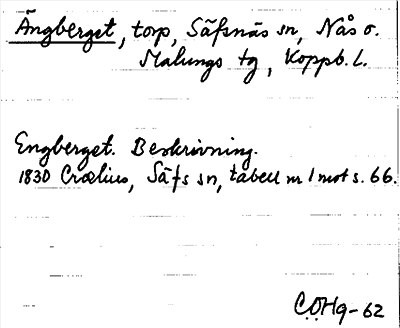 Ängberget, torp, Säfsnäs sn, Nås o.
Malungs tg, Koppb. L.
Engberget. Beskrivning.
1830 Crælius, Säfs sn, tabell nr 1 mot s. 66.
C.O.Hg-62